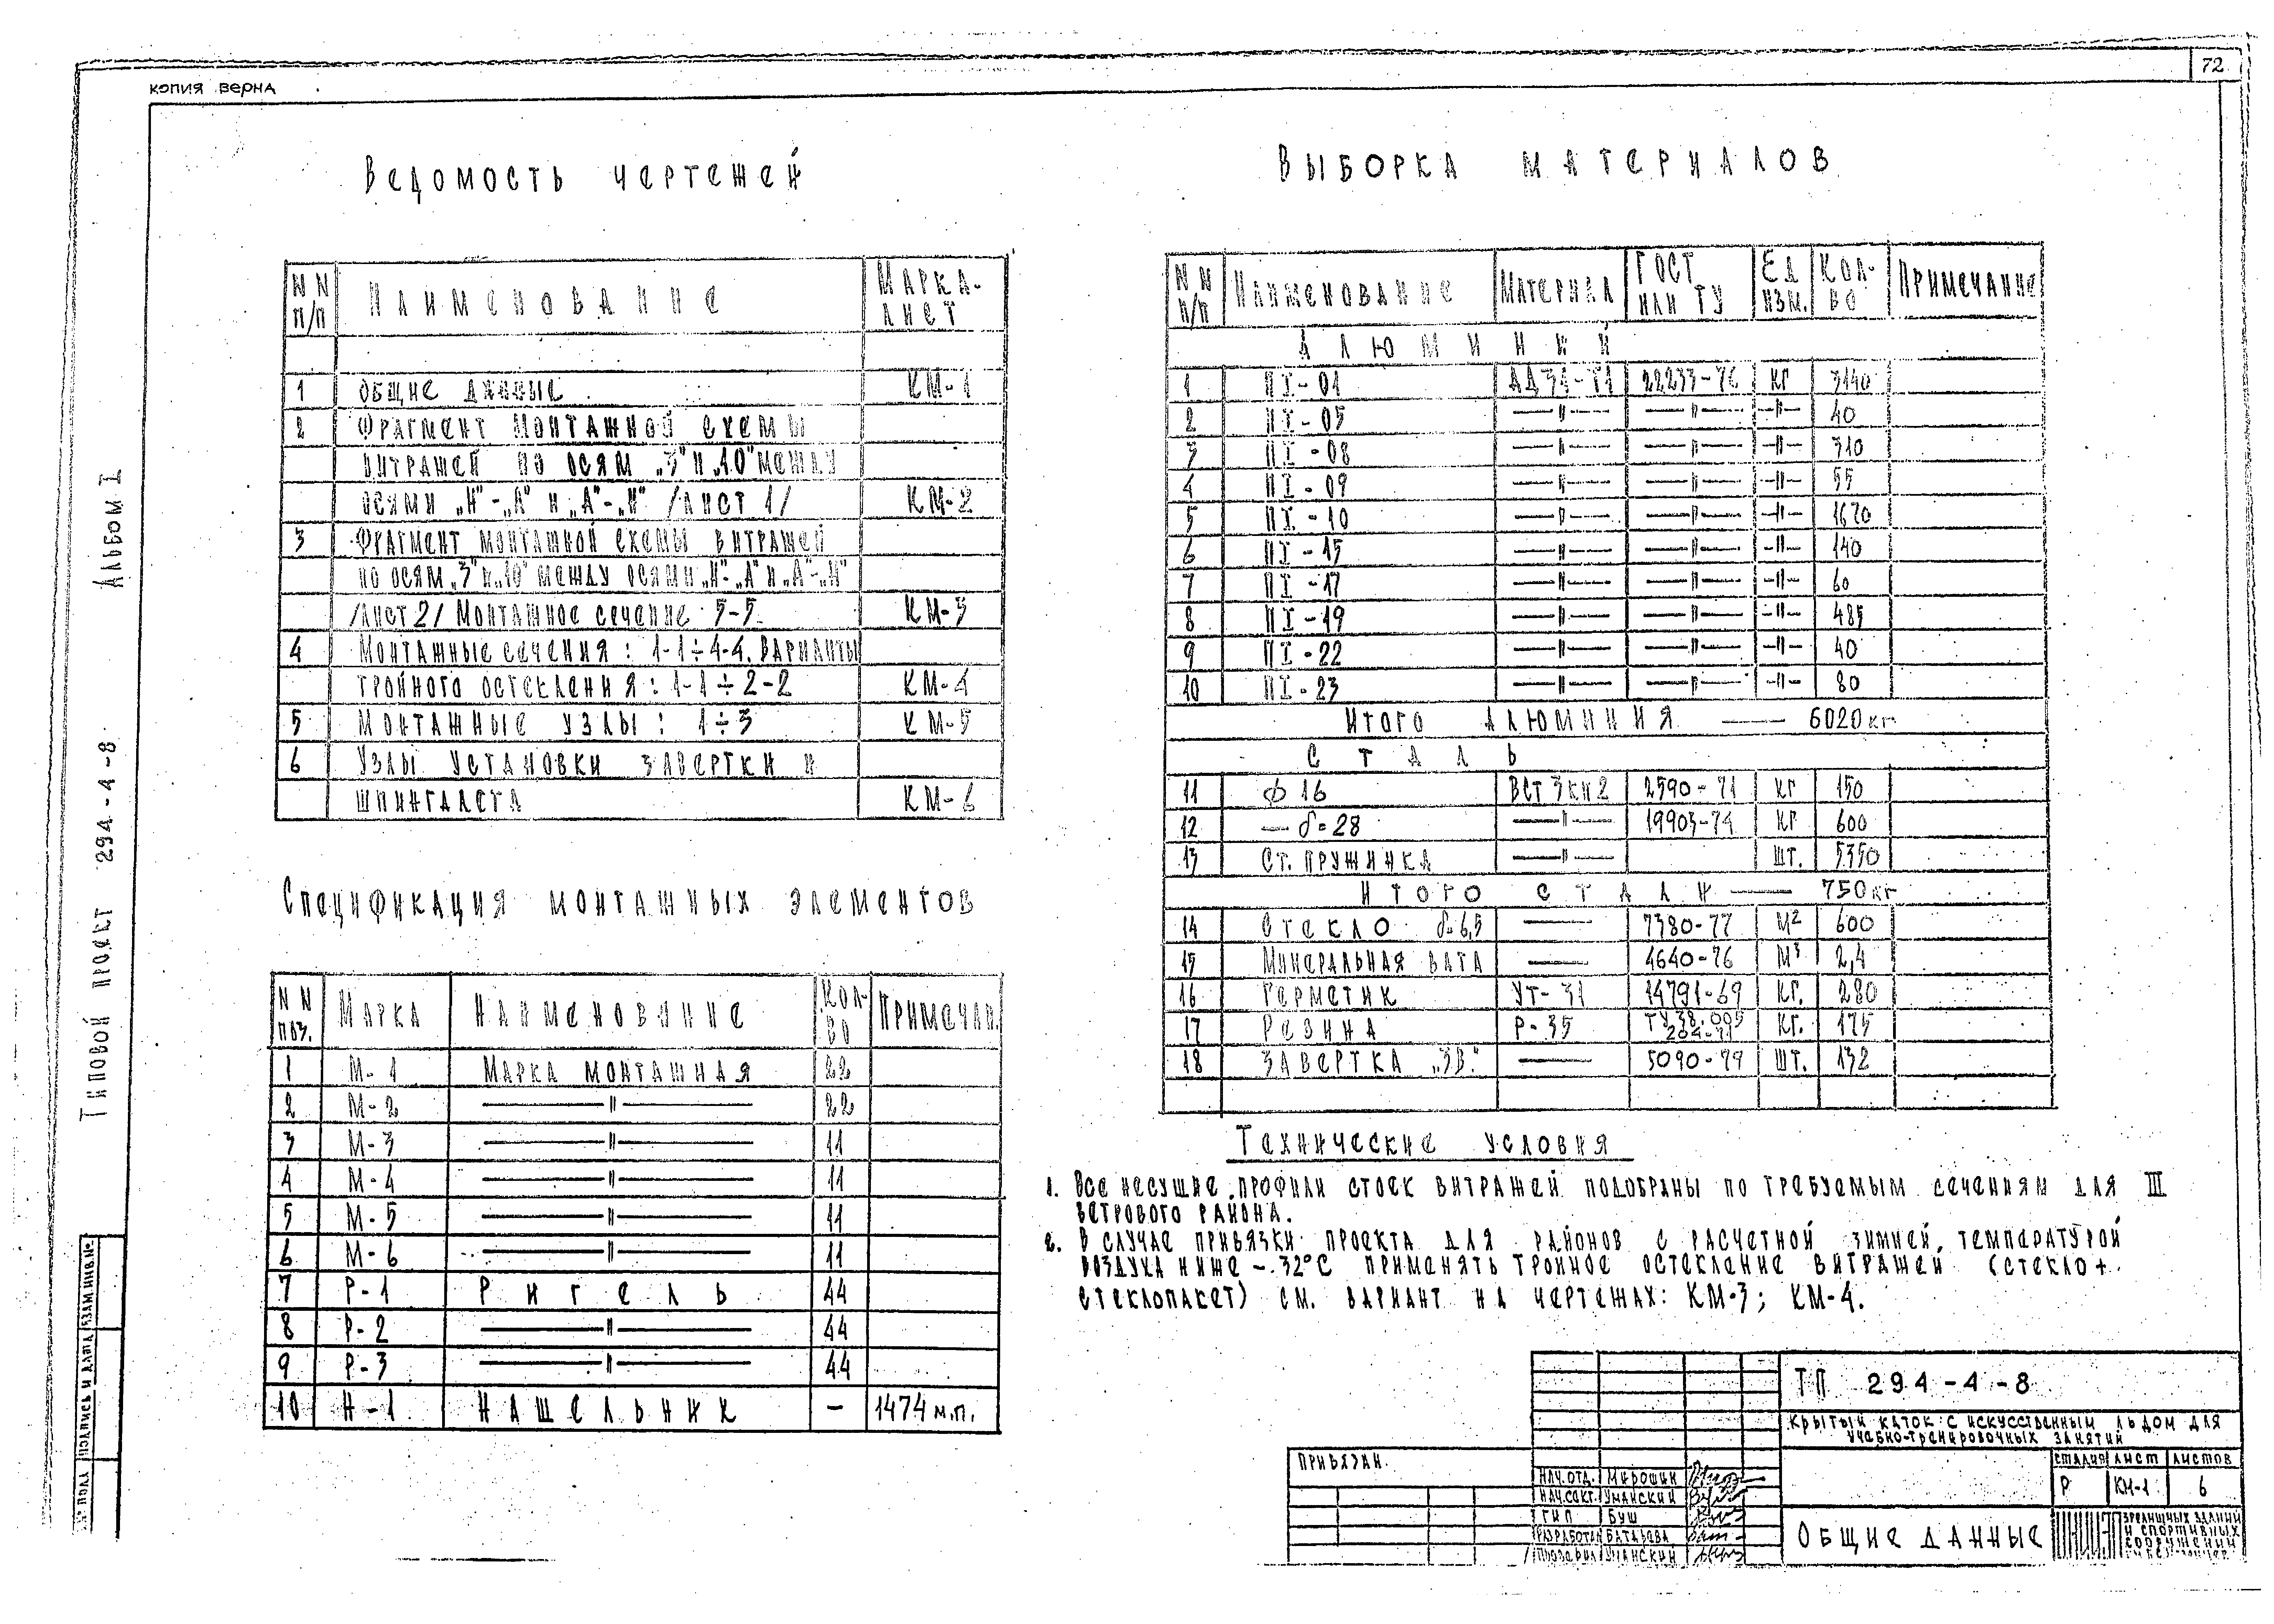 72
КОПИЯ ВЕРНА
Альбом I
Типовой проект 294-4-8
ВЗАМ.ИНВ.№
ПОДПИСЬ И ДАТА
Ведомость чертежей
NN п/п | Наименование | Марка-лист
1 | Общие данные | КМ-1
2 | Фрагмент монтажной схемы
витражей по осям „3" и „10" между
осями „И"-„А" и „А"-„И" /лист 1/ | КМ-2
3 | Фрагмент монтажной схемы витражей
по осям „3" и „10" между осями „И"-„А" и „А"-„И"
/лист 2/ Монтажное сечение 5-5. | КМ-3
4 | Монтажные сечения: 1-1÷4-4. Варианты
тройного остекления: 1-1÷2-2 | КМ-4
5 | Монтажные узлы: 1÷3 | КМ-5
6 | Узлы установки завертки и
шпингалета | КМ-6
Спецификация монтажных элементов
NN поз. | Марка | Наименование | Кол-во | Примечан.
1 | М-1 | Марка монтажная | 22
2 | М-2 | —"— | 22
3 | М-3 | —"— | 11
4 | М-4 | —"— | 11
5 | М-5 | —"— | 11
6 | М-6 | —"— | 11
7 | Р-1 | Ригель | 44
8 | Р-2 | —"— | 44
9 | Р-3 | —"— | 44
10 | Н-1 | Нащельник | – | 1474 м.п.
Выборка материалов
NN п/п | Наименование | Материал | ГОСТ или ТУ | Ед изм. | Кол-во | Примечание
Алюминий
1 | ПI-01 | АД31-Т1 | 22233-76 | кг | 3140
2 | ПI-05 | —"— | —"— | —"— | 40
3 | ПI-08 | —"— | —"— | —"— | 310
4 | ПI-09 | —"— | —"— | —"— | 55
5 | ПI-10 | —"— | —"— | —"— | 1670
6 | ПI-15 | —"— | —"— | —"— | 140
7 | ПI-17 | —"— | —"— | —"— | 60
8 | ПI-19 | —"— | —"— | —"— | 485
9 | ПI-22 | —"— | —"— | —"— | 40
10 | ПI-23 | —"— | —"— | —"— | 80
Итого алюминия — 6020 кг
Сталь
11 | ф 16 | ВСт3кп2 | 2590-71 | кг | 150
12 | — δ=28 | —"— | 19903-74 | кг | 600
13 | Ст. пружинка | —"— | | шт. | 5350
Итого стали — 750 кг
14 | Стекло δ=6,5 | — | 7380-77 | м² | 600
15 | Минеральная вата | — | 4640-76 | м³ | 2,4
16 | Герметик | УТ-31 | 14791-69 | кг. | 280
17 | Резина | Р-35 | ТУ38.005 204-71 | кг. | 175
18 | Завертка „ЗВ" | — | 5090-79 | шт. | 132
Технические условия
1. Все несущие профили стоек витражей подобраны по требуемым сечениям для III
ветрового района.
2. В случае привязки проекта для районов с расчетной зимней температурой
воздуха ниже -32°С применять тройное остекление витражей (стекло+
стеклопакет) см. вариант на чертежах: КМ-3; КМ-4.
Привязан.
Нач.отд. Мирошин
Нач.сект. Уманский
ГИП Буш
Разработал Батаева
Проверил Уманский
ТП 294-4-8
Крытый каток с искусственным льдом для
учебно-тренировочных занятий
Стадия | Лист | Листов
Р | КМ-1 | 6
Общие данные
зрелищных зданий
и спортивных
сооружений